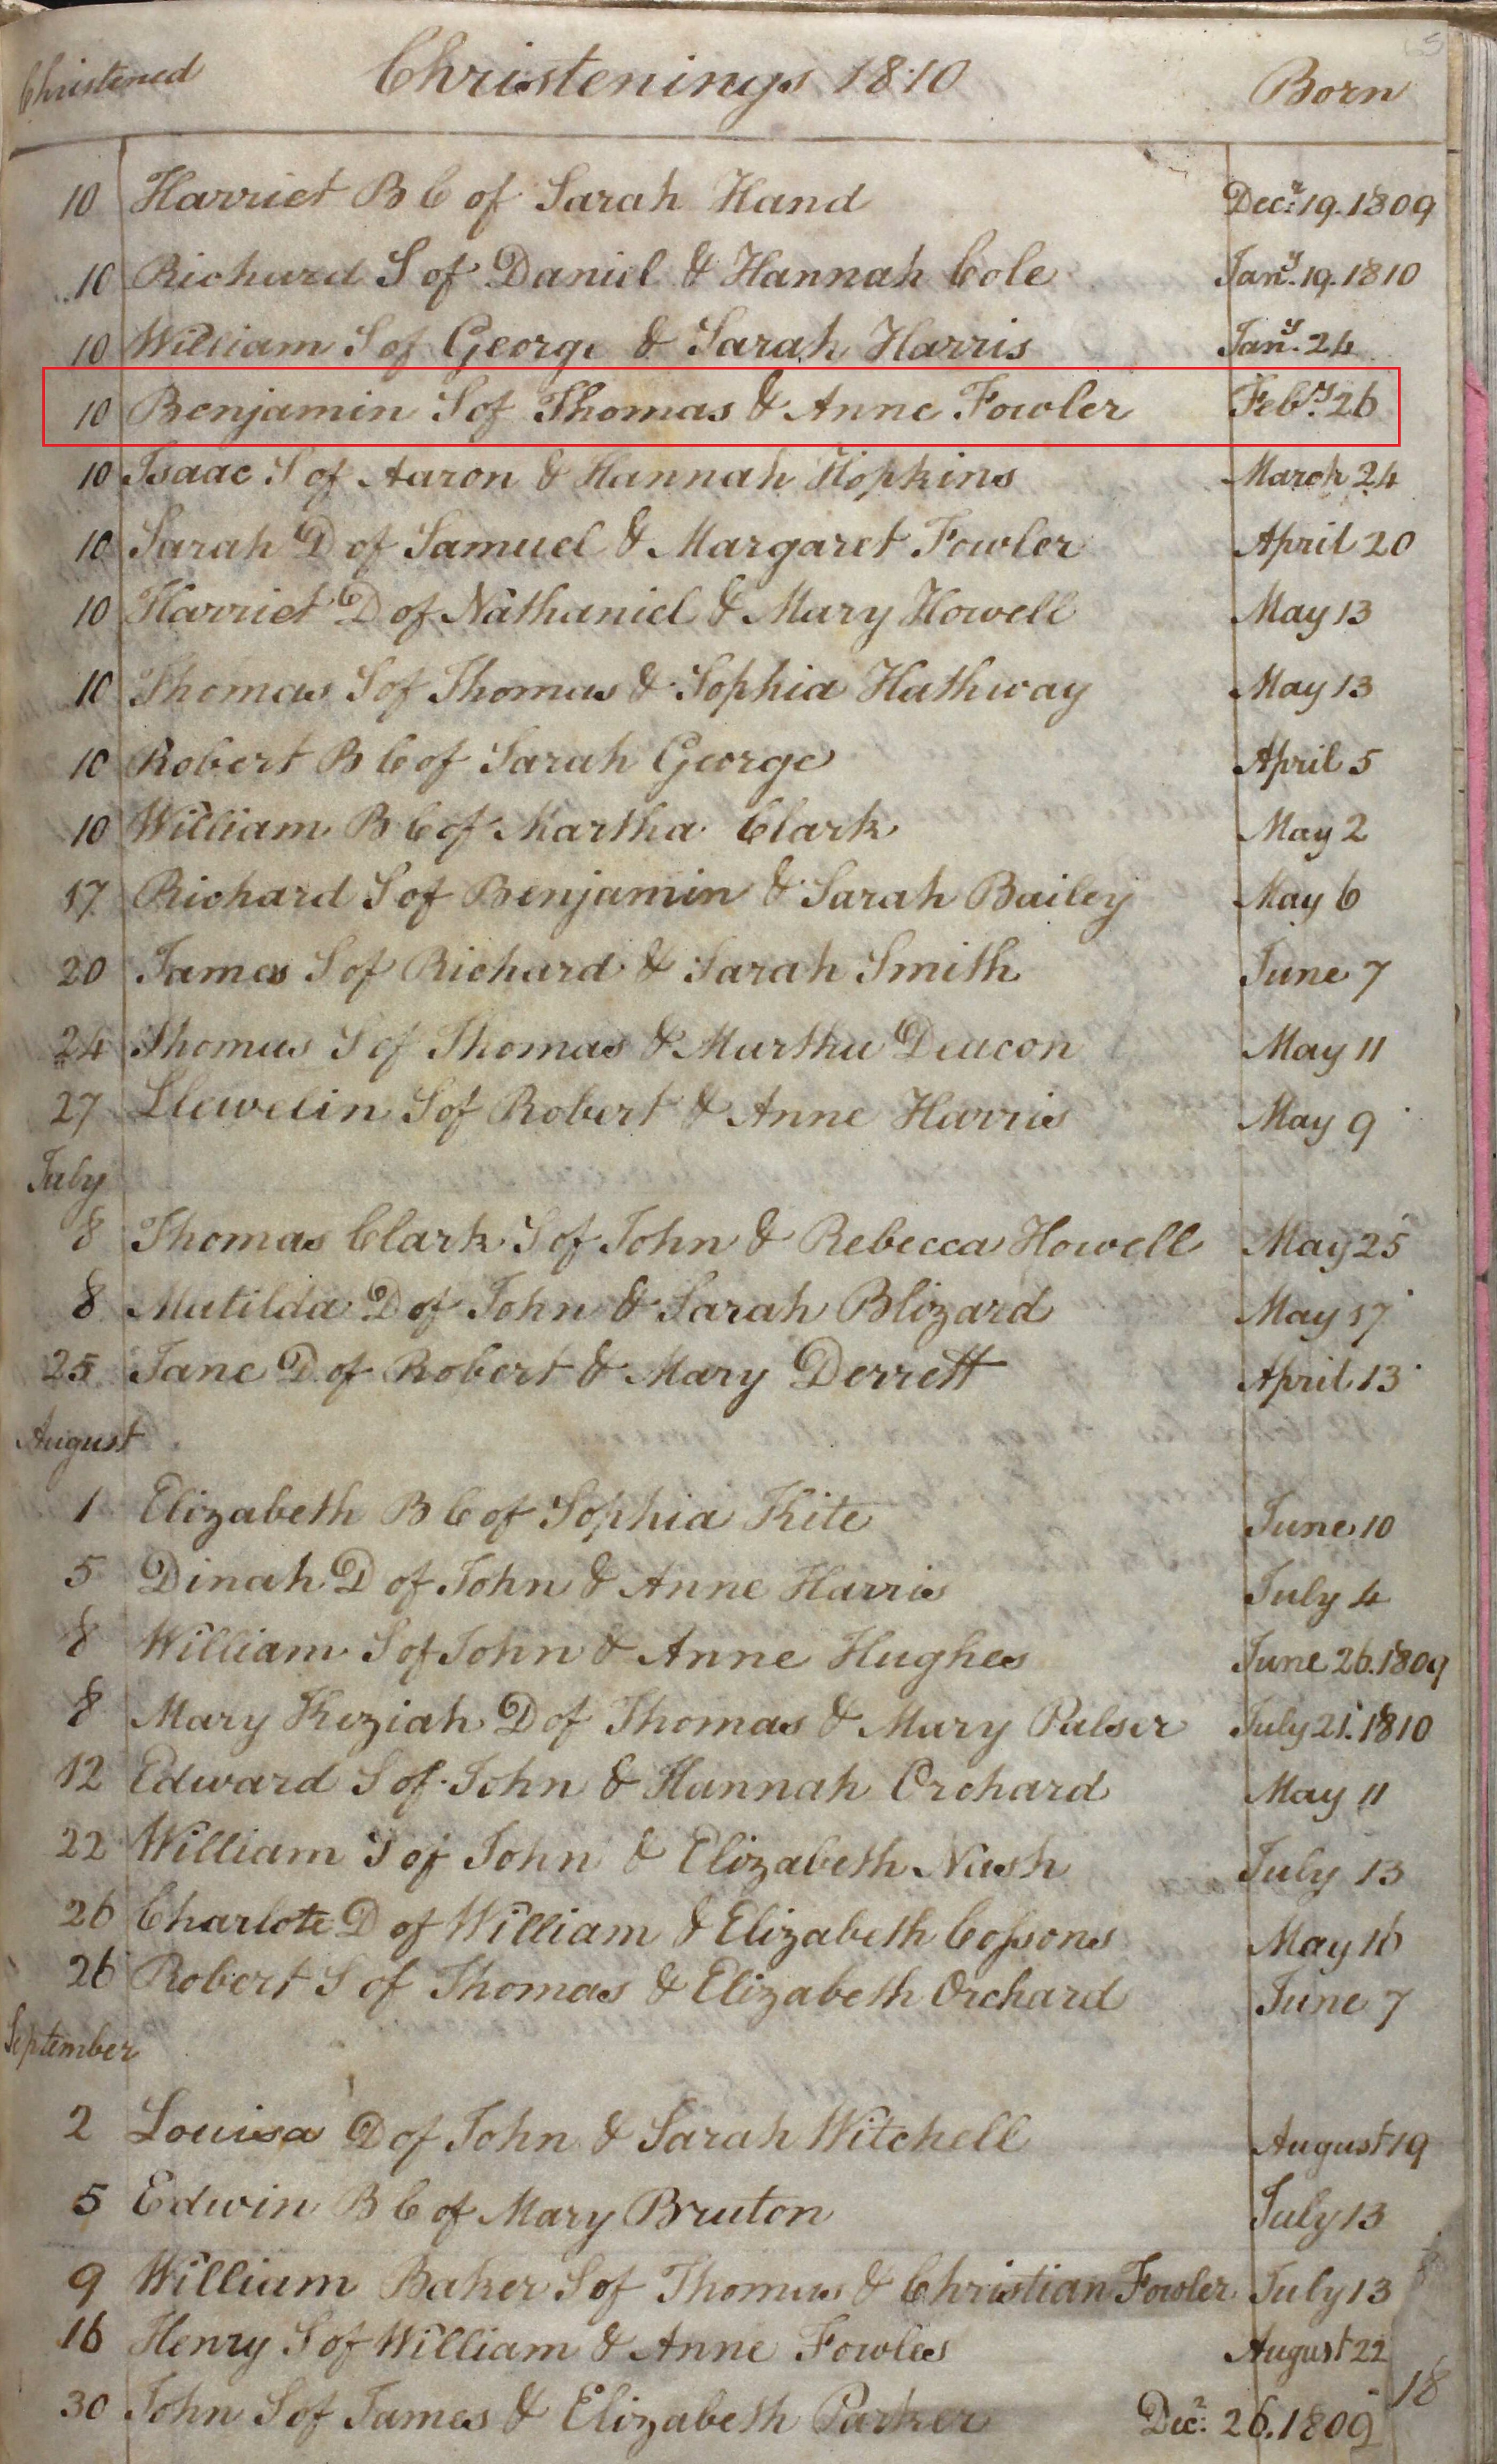 Christened Christenings 1810 Born
10 Harriet B C of Sarah Hand Decr: 19. 1809
10 Richard S of Daniel & Hannah Cole Jany. 19. 1810
10 William S of George & Sarah Harris Jany. 24
10 Benjamin S of Thomas & Anne Fowler Feby. 26
10 Isaac S of Aaron & Hannah Hopkins March 24
10 Sarah D of Samuel & Margaret Fowler April 20
10 Harriet D of Nathaniel & Mary Howell May 13
10 Thomas S of Thomas & Sophia Hathway May 13
10 Robert B C of Sarah George April 5
10 William B C of Martha Clark May 2
17 Richard S of Benjamin & Sarah Bailey May 6
20 James S of Richard & Sarah Smith June 7
24 Thomas S of Thomas & Martha Deacon May 11
27 Llewelin S of Robert & Anne Harris May 9
July
8 Thomas Clark S of John & Rebecca Howell May 25
8 Matilda D of John & Sarah Blizard May 17
25 Jane D of Robert & Mary Derrett April 13
August
1 Elizabeth B C of Sophia Kite June 10
5 Dinah D of John & Anne Harris July 4
8 William S of John & Anne Hughes June 26. 1809
8 Mary Keziah D of Thomas & Mary Palser July 21. 1810
12 Edward S of John & Hannah Orchard May 11
22 William S of John & Elizabeth Nash July 13
26 Charlote D of William & Elizabeth Cossons May 16
26 Robert S of Thomas & Elizabeth Orchard June 7
September
2 Louisa D of John & Sarah Witchell August 19
5 Edwin B C of Mary Bruton July 13
9 William Baker S of Thomas & Christian Fowler July 13
16 Henry S of William & Anne Fowles August 22
30 John S of James & Elizabeth Parker Decr: 26. 1809
18